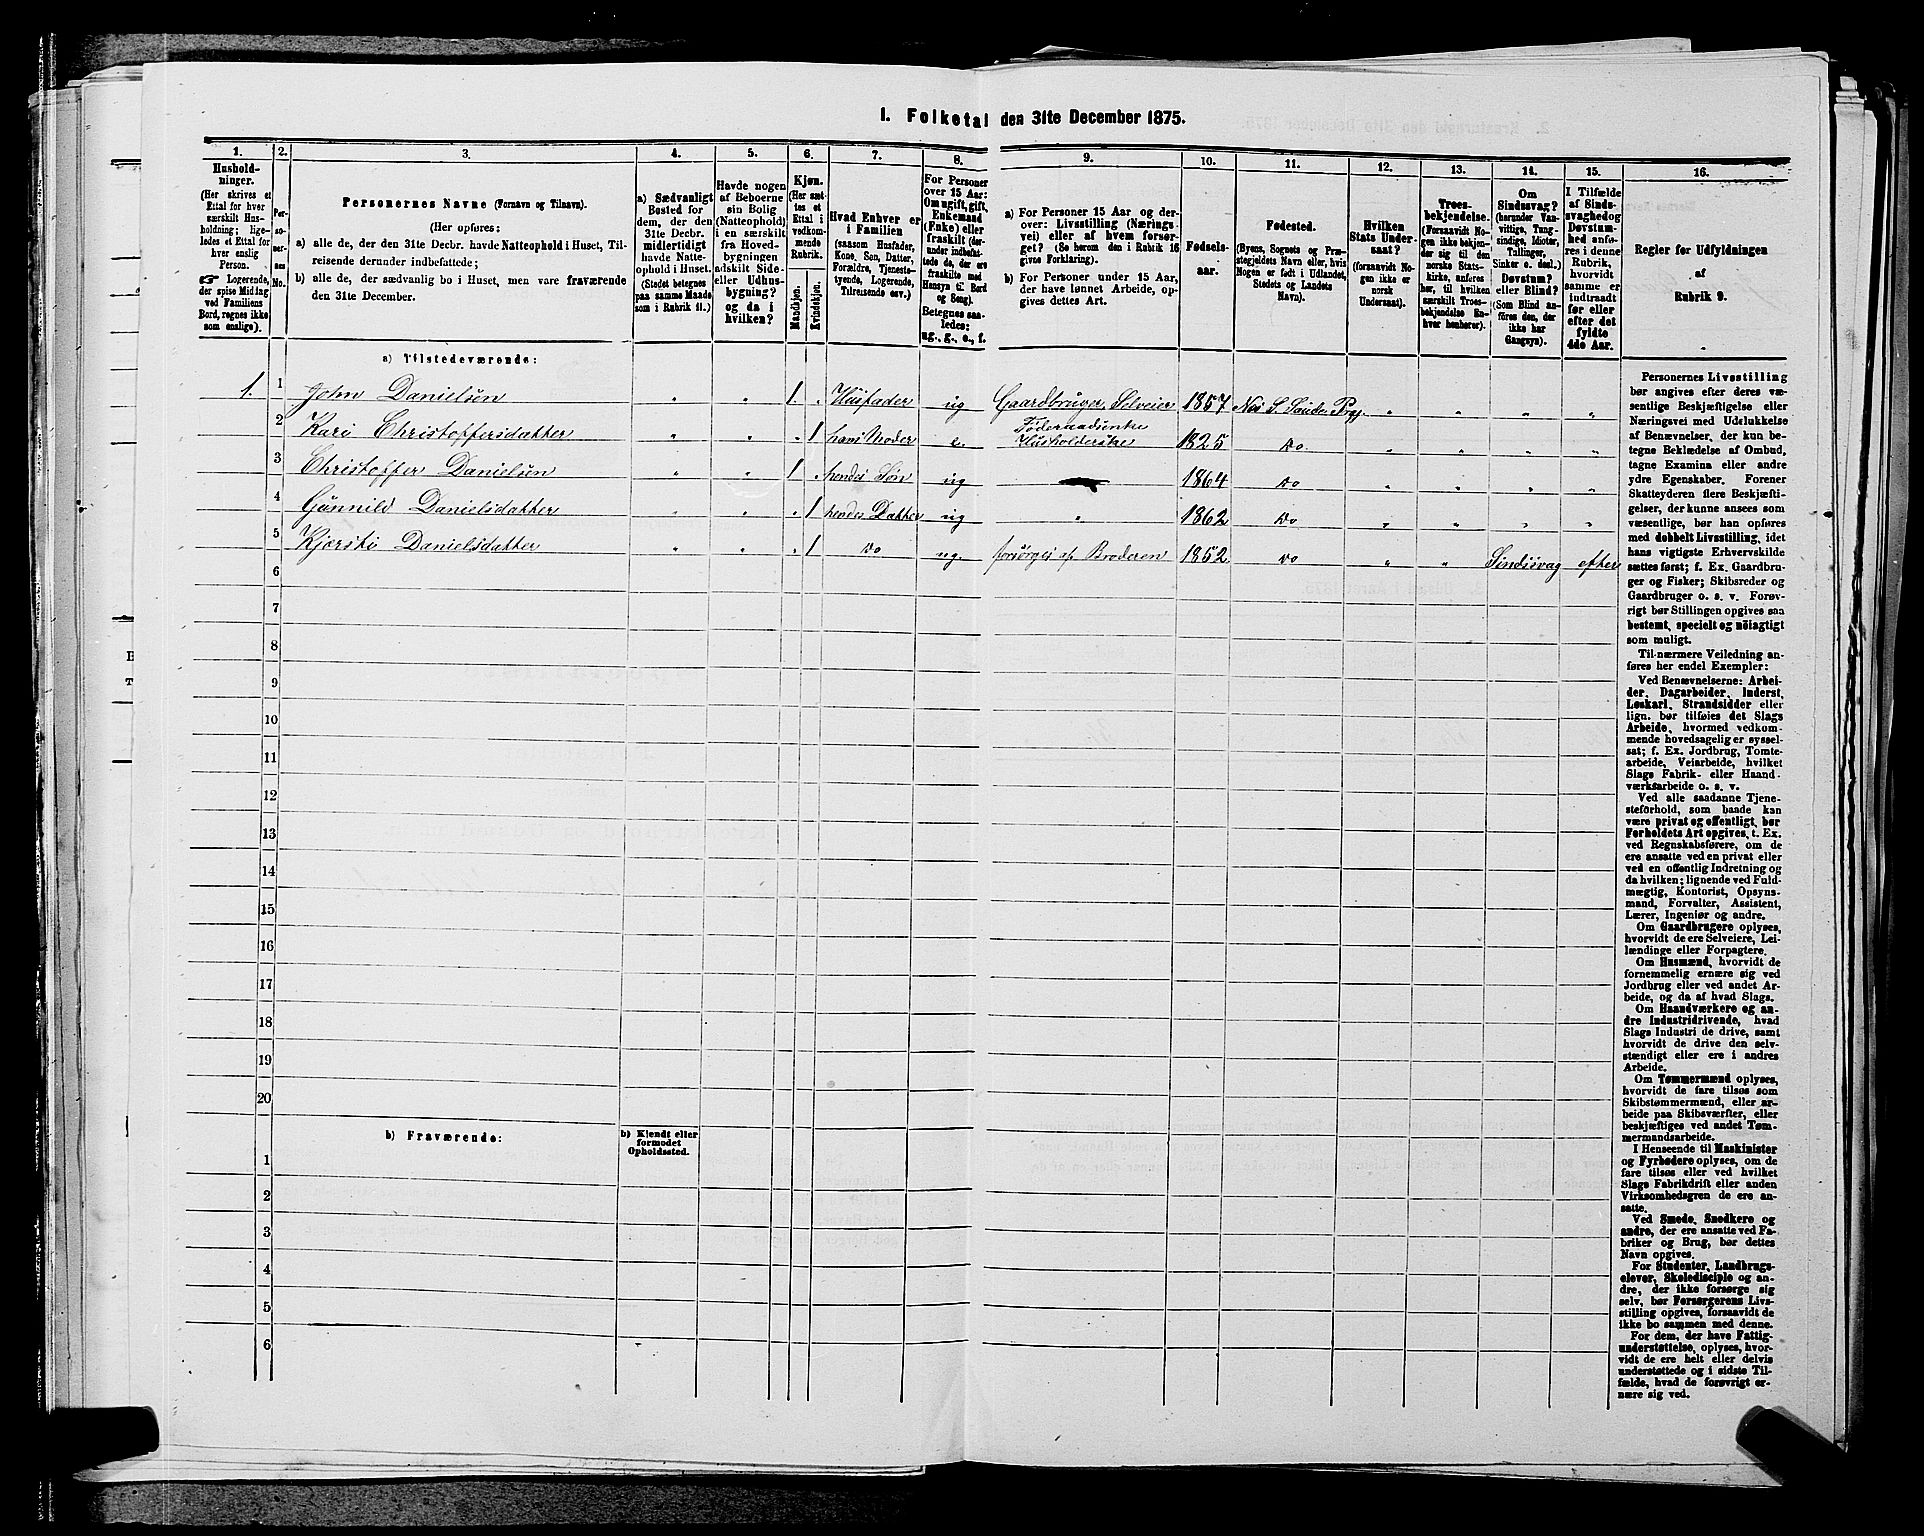 1. Folketal den 31te December 1875.
1.
2.
3.
4.
5.
6.
7.
8.
9.
10.
11.
12.
13.
14.
15.
16.
Hushold-
ninger.
(Her skrives et
Ettal for hver
særskilt Hus-
holdning; lige-
ledes et Ettal for
hver enslig
Person.
Logerende,
der spise Middag
ved Familiens
Bord, regnes ikke
som enslige).
Per-
so-
ner-
nes
No.
Personernes Navne (Fornavn og Tilnavn).
(Her opføres:
a) alle de, der den 31te Decbr. havde Natteophold i Huset, Til-
reisende derunder indbefattede;
b) alle de, der sædvanlig bo i Huset, men vare fraværende
den 31te December.
a) Sædvanligt
Bosted for
dem, der den
31te Decbr.
midlertidigt
havde Natte-
ophold i Huset.
(Stedet betegnes
paa samme Maade
som i Rubrik 11.)
Havde nogen
af Beboerne
sin Bolig
(Natteophold)
i en særskilt
fra Hoved-
bygningen
adskilt Side-
eller Udhus-
bygning?
og da i
hvilken?
Kjøn.
(Her sæt-
tes et
Ettal i
vedkom-
mende
Rubrik.
Mandkjøn.
Kvindekjøn.
Hvad Enhver er
i Familien
(saasom Husfader,
Kone, Søn, Datter,
Forældre, Tjeneste-
tyende, Logerende,
Tilreisende osv.)
For Personer
over 15 Aar:
Om ugift, gift,
Enkemand
(Enke) eller
fraskilt (der-
under indbefat-
tede de, der ere
fraskilte med
Hensyn til Bord
og Seng).
Betegnes saa-
ledes:
ug., g., e., f.
a) For Personer 15 Aar og der-
over: Livsstilling (Nærings-
vei) eller af hvem forsør-
get? (Se herom den i Rubrik 16
givne Forklaring).
b) For Personer under 15 Aar,
der have lønnet Arbeide, op-
gives dettes Art.
Fødsels-
aar.
Fødested.
(Byens, Sognets og Præ-
stegjeldets Navn eller, hvis
Nogen er født i Udlandet,
Stedets og Landets
Navn).
Hvilken
Stats Under-
saat?
(forsaavidt No-
gen ikke er
norsk
Undersaat).
Troes-
bekjendelse.
(Forsaavidt No-
gen ikke bekjen-
der sig til den
norske Stats-
kirke, anføres
her, til hvilken
særskilt Troes-
bekjendelse En-
hver henhører).
Om
Sindssvag?
(herunder Van-
vittige, Tung-
sindige, Idioter,
Tullinger,
Sinker o. desl.)
Døvstum?
eller Blind?
(Som Blind an-
føres den, der
ikke har
Gangsyn).
I Tilfælde
af Sinds-
svaghed og
Døvstum-
hed anfø-
res i denne
Rubrik,
hvorvidt
samme er
indtraadt
før eller
efter det
fyldte
4de Aar.
Regler for Udfyldningen
af
Rubrik 9.
a) Tilstedeværende:
1. 1 John Danielsen " " 1. " Husfader ug Gaardbruger Selveier 1857 S. " " " "
2 Kari Christoffersdatter " " " 1 hans Moder e. Føderaadsenke
Husholderske 1825 Do " " " "
3 Christoffer Danielsen " " 1 " hendes Søn ug 1864 Do " " " "
4 Gunnild Danielsdatter " " " 1 hendes Datter ug " 1862 Do " " " "
5 Kjersti Danielsdatter " " " 1 Do ug. forsørges af Broderen 1852 Do " " Sindssvag efter
6
7
8
9
10
11
12
13
14
15
16
17
18
19
20
b) Fraværende:
b) Kjendt eller
formodet
Opholdssted.
1
2
3
4
5
6
Personernes Livsstilling
bør angives efter deres væ-
sentlige Beskjæftigelse eller
Næringsvei med Udelukkelse
af Benævnelser, der kun be-
tegne Beklædelse af Ombud,
tagne Examina eller andre
ydre Egenskaber. Forener
Skatteyderen flere Beskjæfti-
gelser, der kunne ansees som
væsentlige, bør han opføres
med dobbelt Livsstilling, idet
hans vigtigste Erhvervskilde
sættes først; f. Ex. Gaardbru-
ger og Fisker; Skibsreder og
Gaardbruger o. s. v. Forøv-
rigt bør Stillingen opgives saa
bestemt, specielt og nöiagtigt
som muligt.
Til nærmere Veiledning an-
føres her endel Exempler:
Ved Benævnelserne: Arbei-
der, Dagarbeider, Inderst,
Løskarl, Strandsidder eller
lign. bør tilføies det Slags
Arbeide, hvormed vedkom-
mende hovedsagelig er syssel-
sat; f. Ex. Jordbrug, Tomte-
arbeide, Veiarbeide, hvilket
Slags Fabrik- eller Haand-
værksarbeide o. s. v.
Ved alle saadanne Tjene-
steforhold, som baade kan
være privat og offentligt, bør
Forholdets Art opgives, t. Ex.
ved Regnskabsførere, om de
ere ansatte ved en privat eller
ved en offentlig Indretning og
da hvilken; lignende ved Fuld-
mægtig, Kontorist, Opsyns-
mand, Forvalter, Assistent,
Lærer, Ingeniør og andre.
Om Gaardbrugere oplyses,
hvorvidt de ere Selveiere, Lei-
lændinge eller Forpagtere.
Om Husmænd, hvorvidt de
fornemmelig ernære sig ved
Jordbrug eller ved andet Ar-
beide, og da af hvad Slags.
Om Haandværkere og an-
dre Industridrivende, hvad
Slags Industri de drive, samt
hvorvidt de drive den selv-
stændigt eller ere i andres
Arbeide.
Om Tømmermænd oplyses,
hvorvidt de fare tilsøs som
Skibstømmermænd, eller ar-
beide paa Skibsværfter, eller
beskjæftiges ved andet Tøm-
mermandsarbeide.
I Henseende til Maskinister
og Fyrbødere oplyses, om de
fare tilsøs eller ved hvilket
Slags Fabrikdrift eller anden
Virksomhedsgren de ere an-
satte.
Ved Smede, Snedkere og
andre, der ere ansatte ved Fa-
briker og Brug, bør dettes
Navn opgives.
For Studenter, Landbrugs-
elever, Skoledisciple og an-
dre, der ikke forsørge sig
selv, bør Forsørgerens Livs-
stilling opgives, forsaavidt de
ikke bo sammen med denne.
For dem, der have Fattig-
understøttelse, oplyses, hvor-
vidt de ere helt eller delvis
understøttede og i sidste Til-
fælde, hvad de forøvrigt er-
nære sig ved.